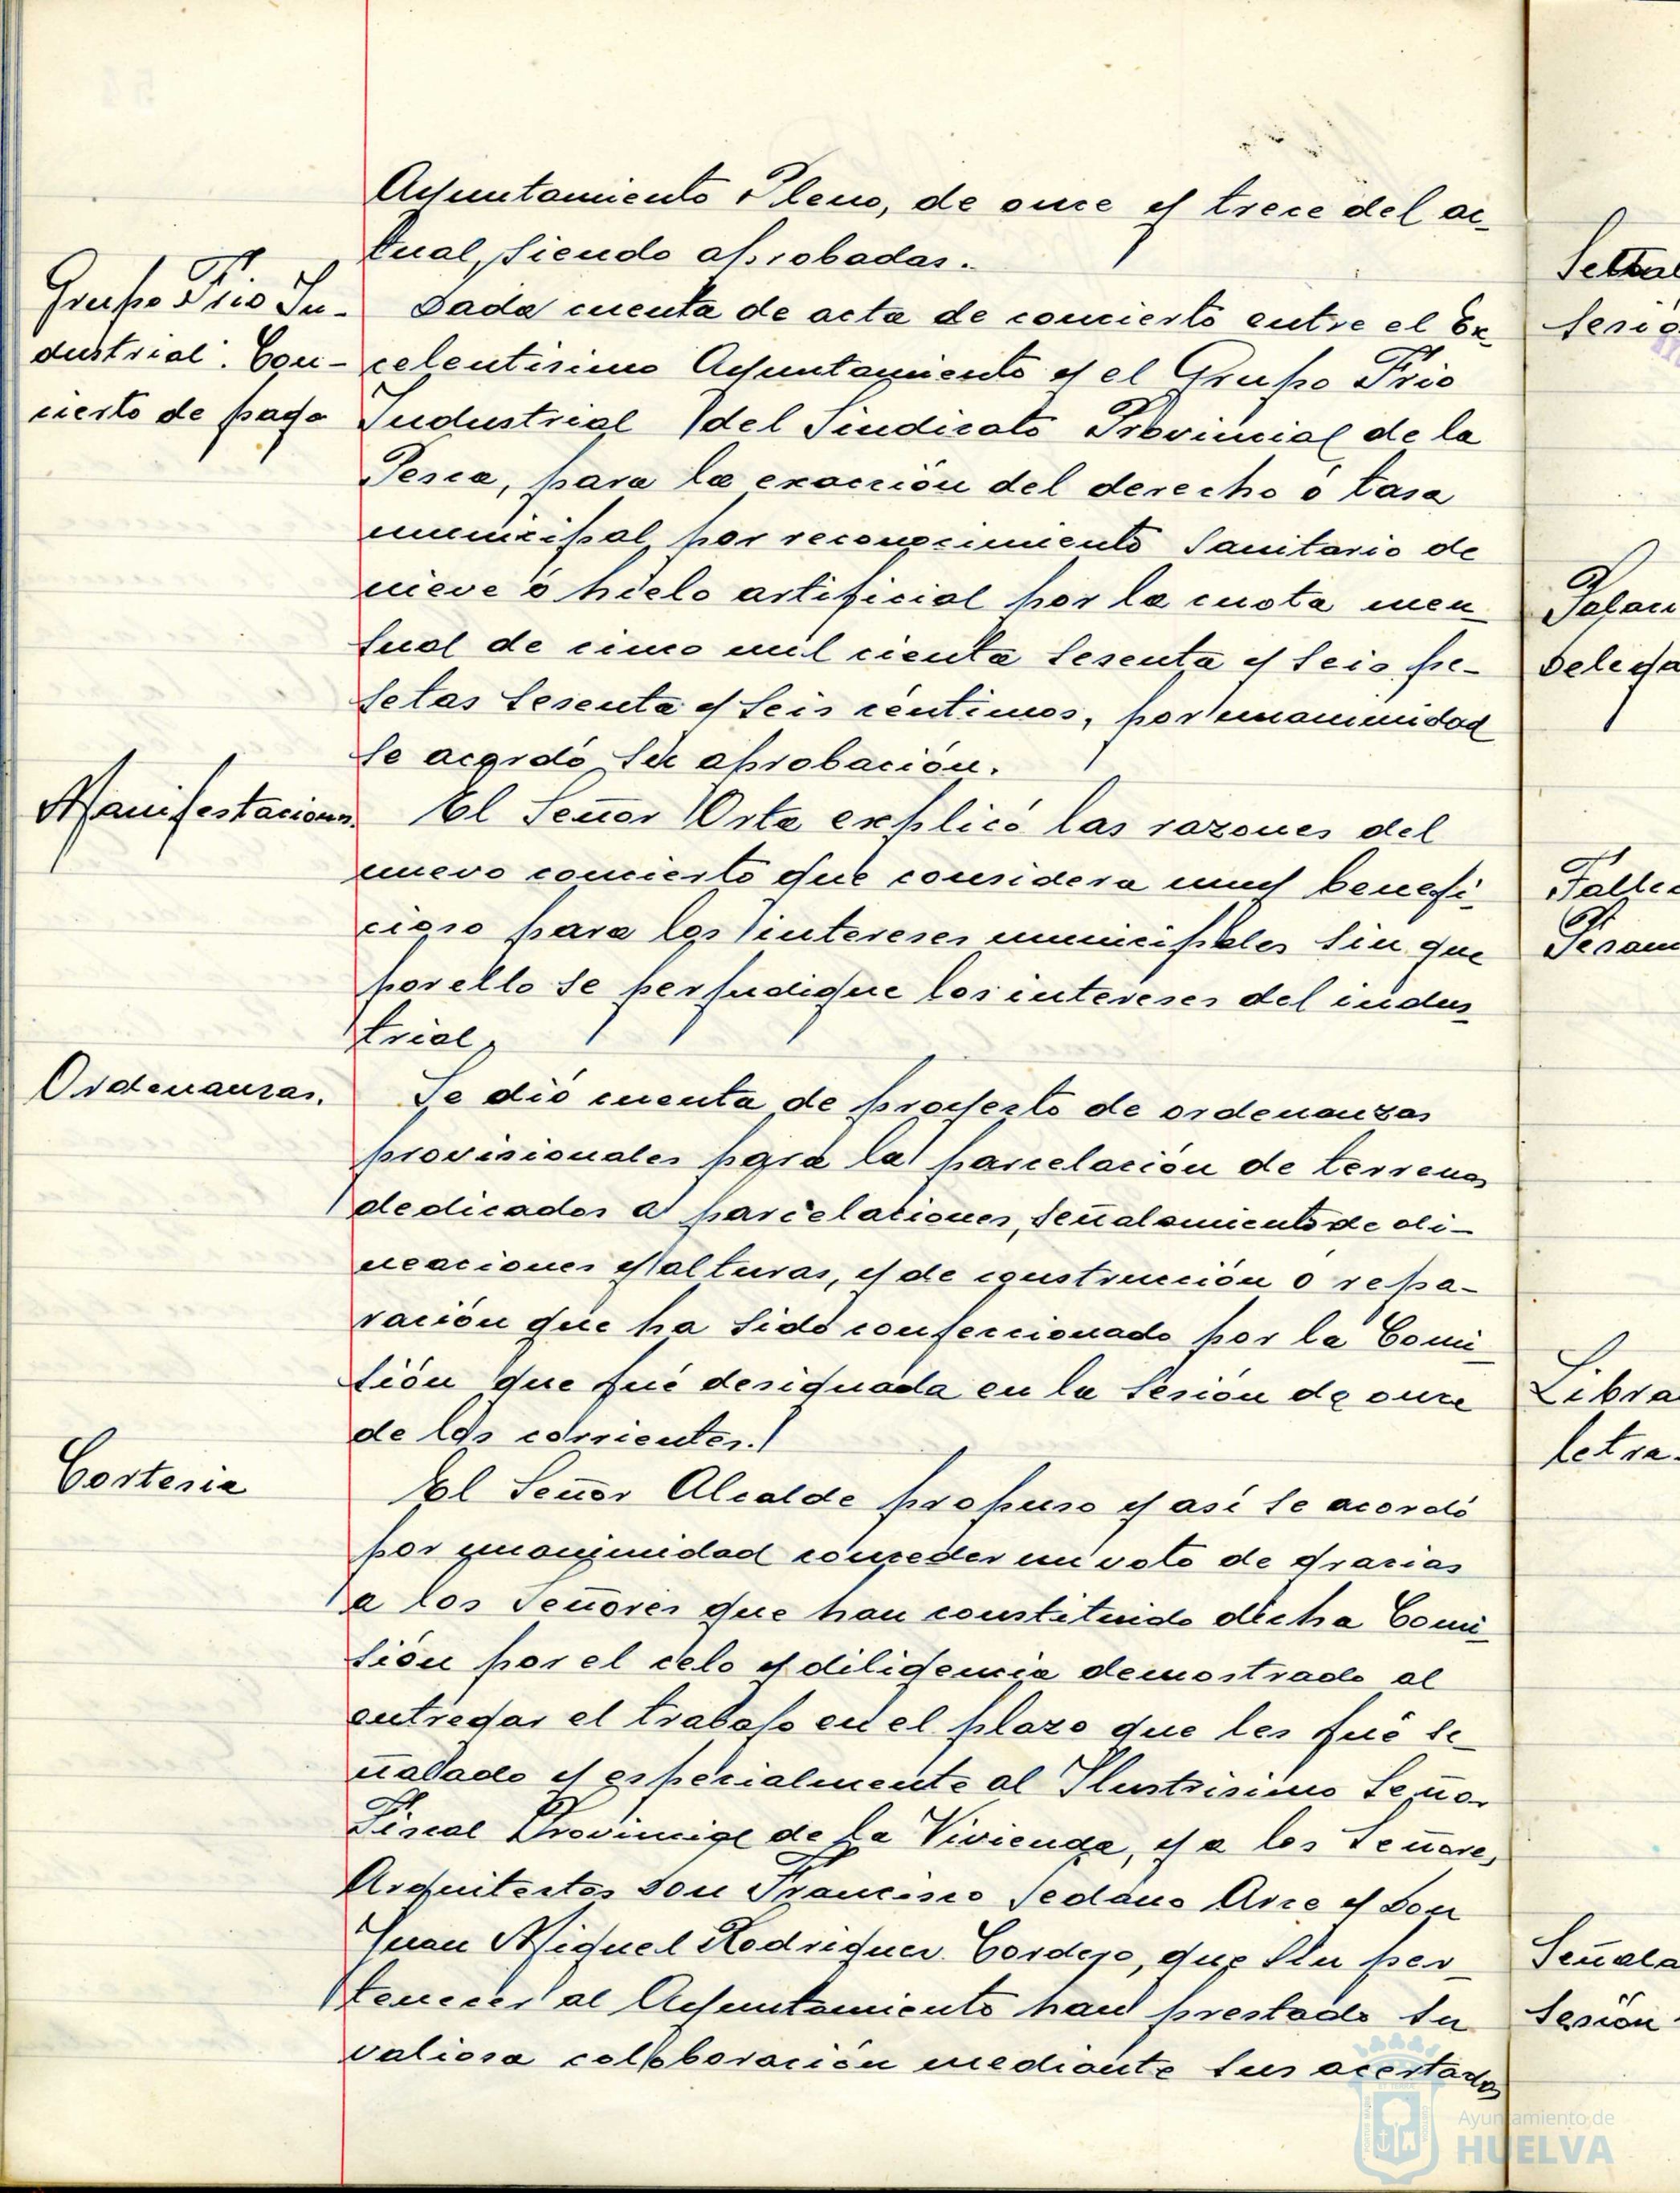 Ayuntamiento Pleno, de once y trece del ac-
tual, siendo aprobadas.
Grupo Frio In-
dustrial. Con-
cierto de pago
Dada cuenta de acta de concierto entre el Ex-
celentisimo Ayuntamiento y el Grupo Frio
Industrial del Sindicato Provincial de la
Pesca, para la exacción del derecho ó tasa
municipal por reconocimiento Sanitario de
nieve ó hielo artificial por la cuota men-
sual de cinco mil cienta sesenta y seis pe-
setas sesenta y seis céntimos, por unanimidad
se acordó su aprobación.
Manifestaciones.
El Señor Orta explicó las razones del
nuevo concierto que considera muy benefi-
cioso para los intereses municipales sin que
por ello se perjudique los intereses del indus-
trial.
Ordenanzas.
Se dió cuenta de proyecto de ordenanzas
provisionales para la parcelación de terrenos
dedicados a parcelaciones, señalamiento de ali-
neaciones y alturas, y de construcción o repa-
ración que ha sido confeccionado por la Comi-
sión que fué designada en la sesión de once
de los corrientes.
Cortesia
El Señor Alcalde propuso y así se acordó
por unanimidad conceder un voto de gracias
a los Señores que han constituido dicha Comi-
sión por el celo y diligencia demostrado al
entregar el trabajo en el plazo que les fué se-
ñalado y especialmente al Ilustrisimo Señor
Fiscal Provincial de la Vivienda, y a los Señores
Arquitectos Don Francisco Sedano Arce y Don
Juan Miguel Rodriguez Cordero, que sin per-
tenecer al Ayuntamiento han prestado su
valiosa colaboración mediante sus acertados
Palaci
Delega
Falle
Libra
letra
Señala
Sesión
Ayuntamiento de
HUELVA